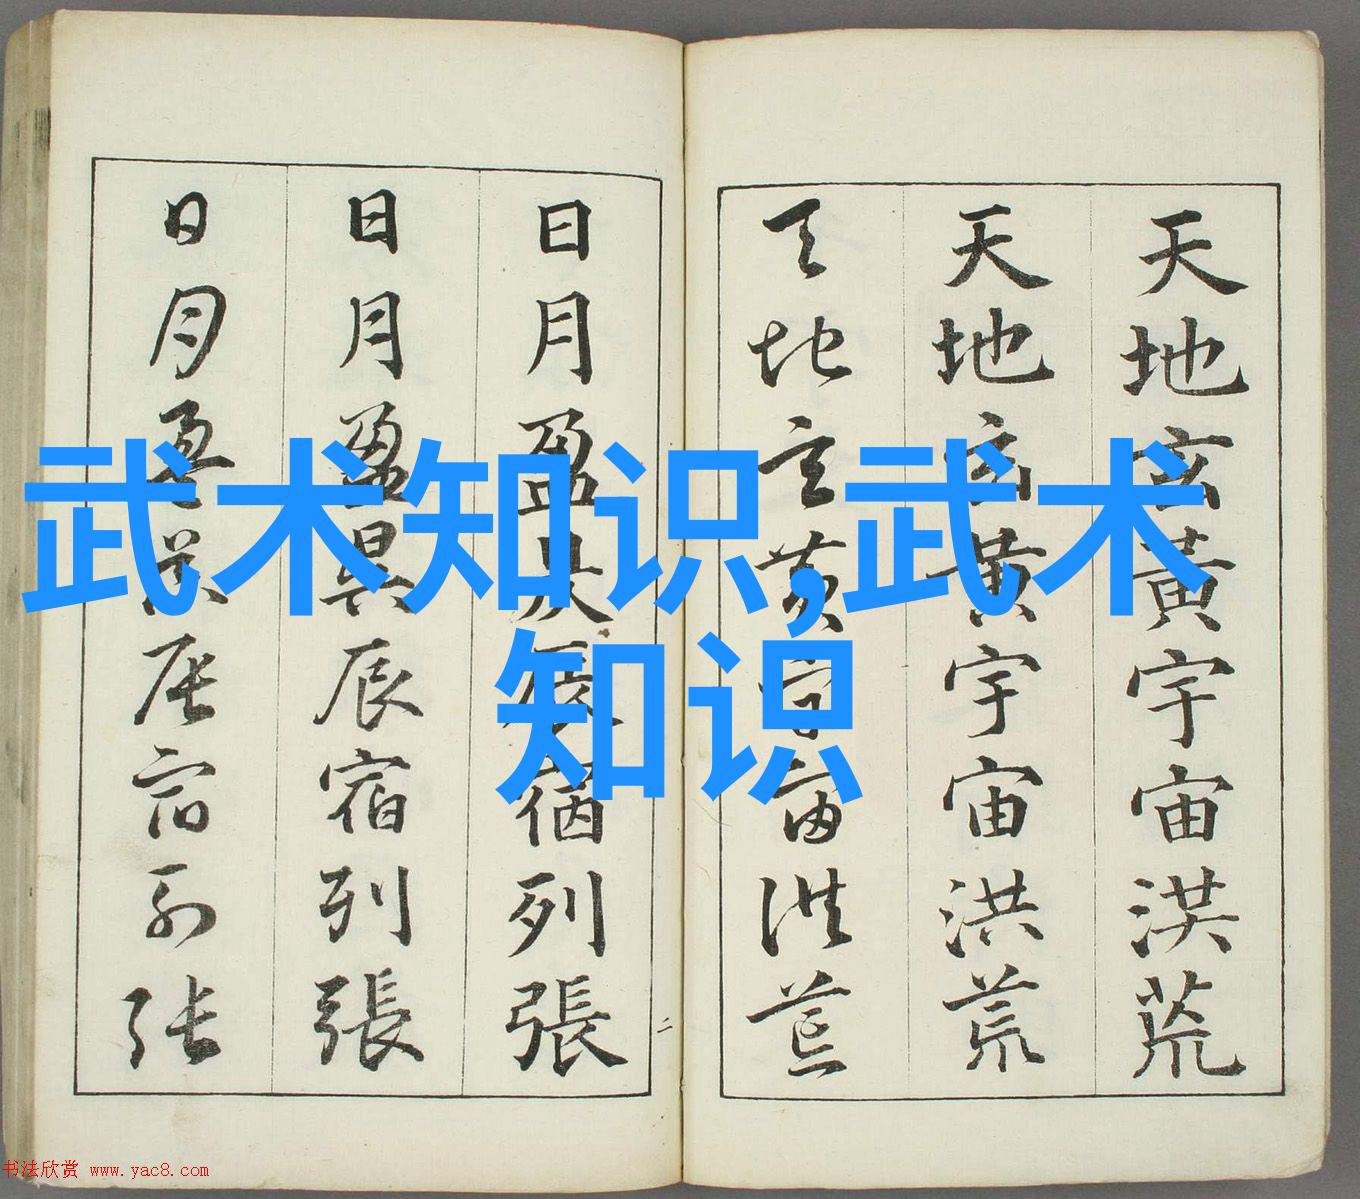 天地玄黃宇宙洪荒
天地玄黃宇宙洪荒
天地玄黃宇宙洪荒
日月盈昃辰宿列張
日月盈昃辰宿列張
日月盈昃辰宿列張
二
武术知识,武术
知识
书法欣赏 www.yac8.com